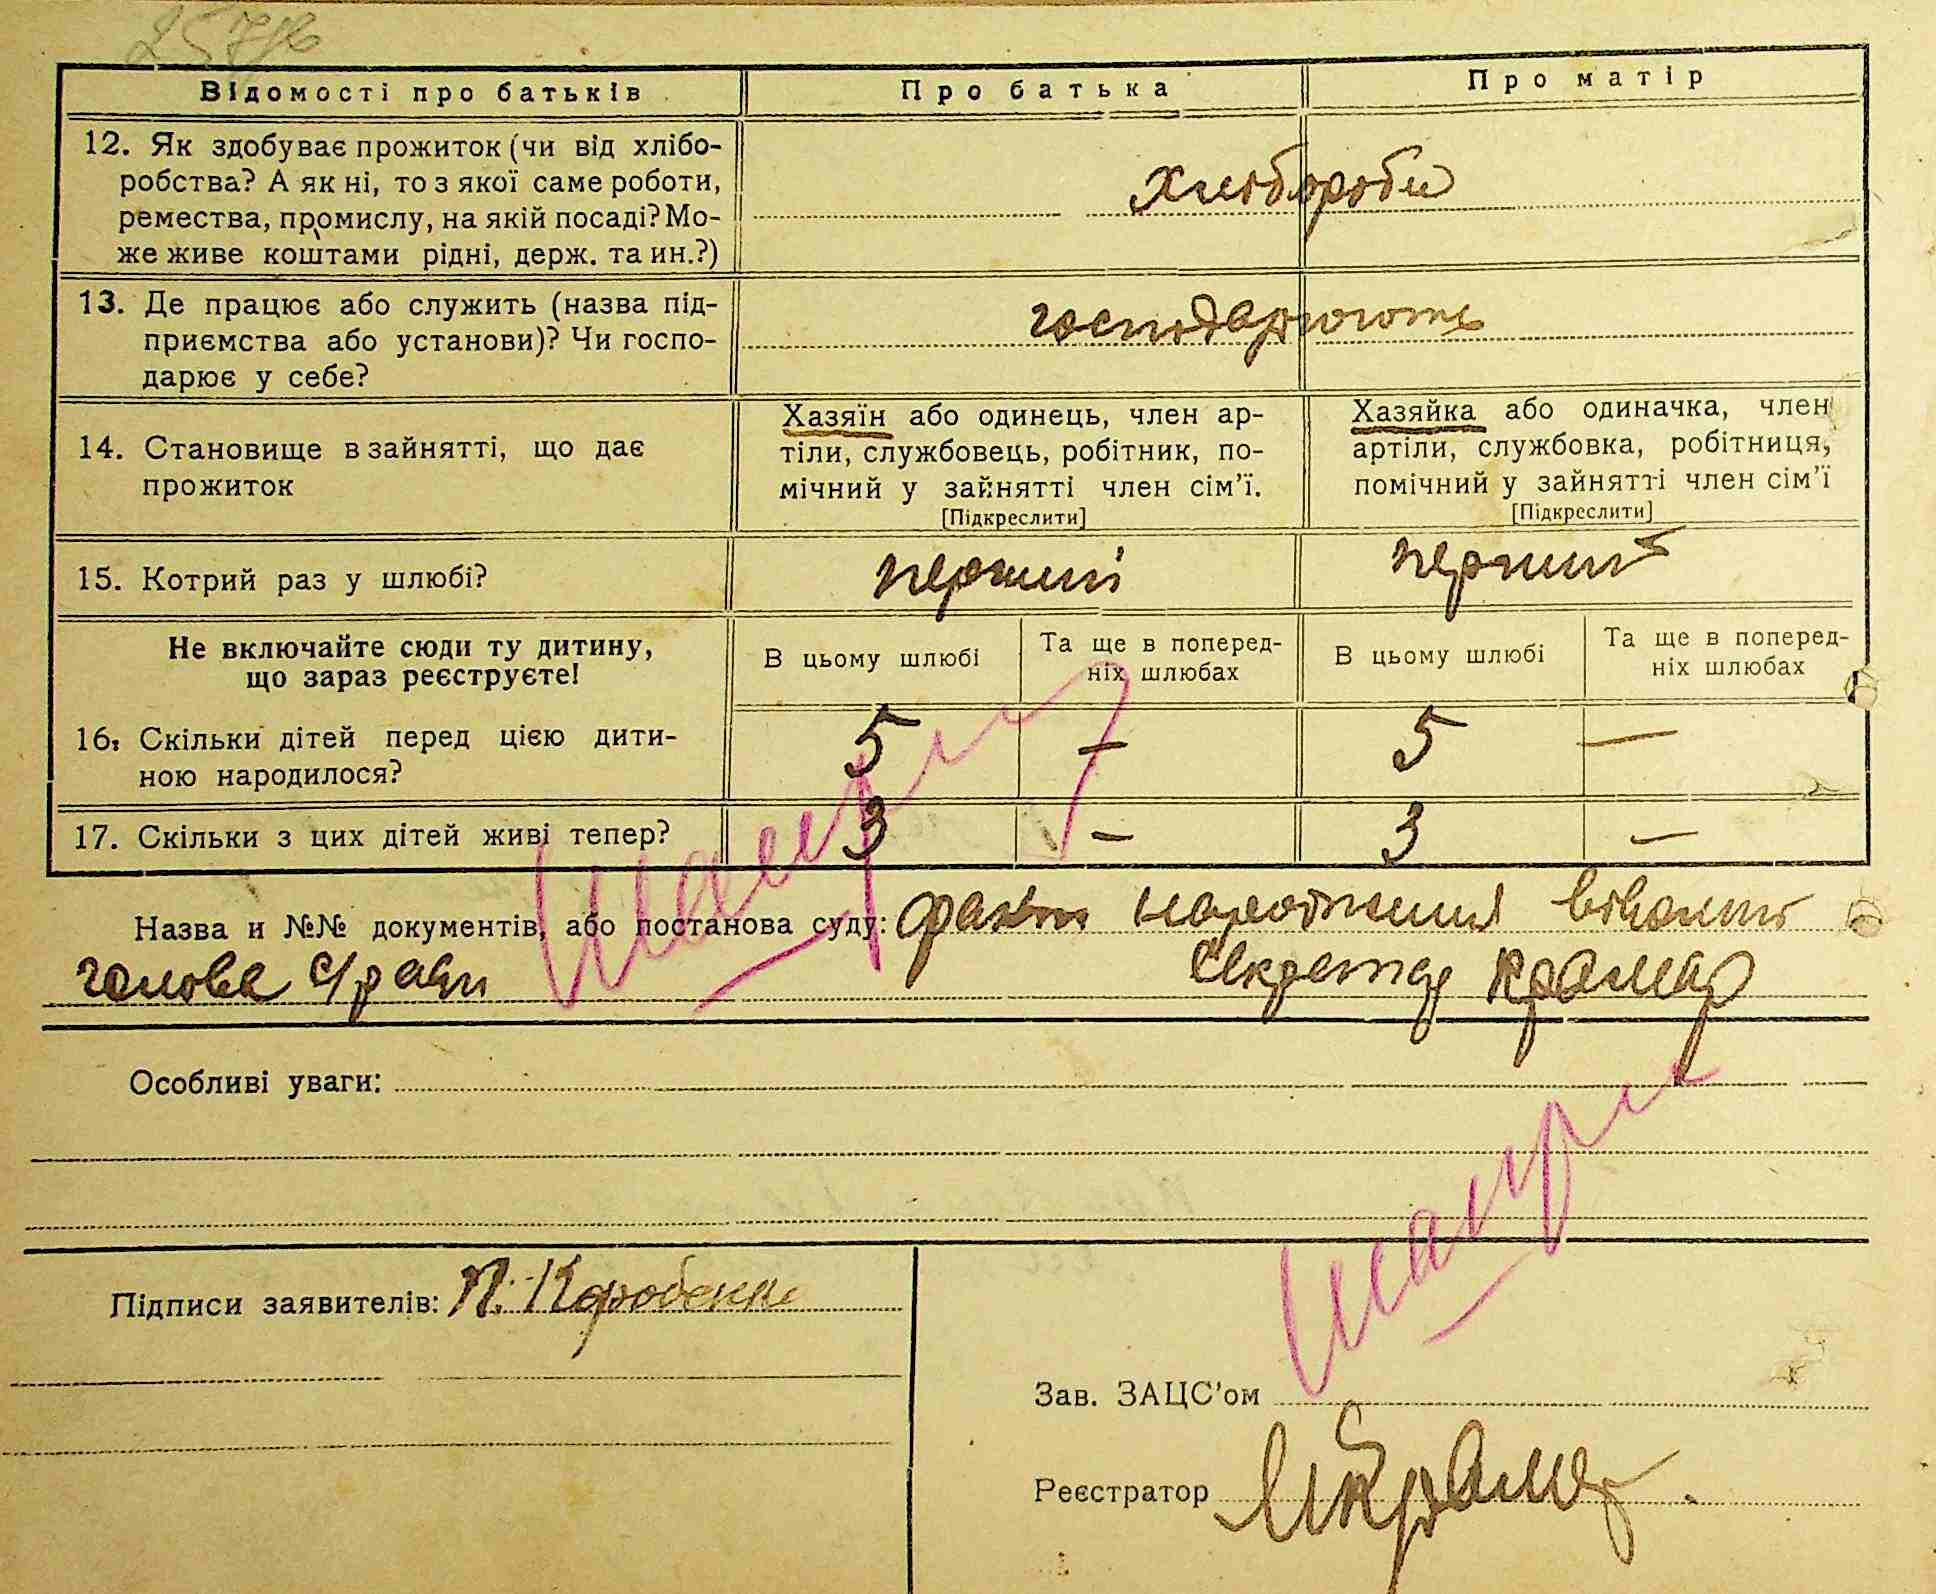 Відомості про батьків Про батька Про матір
12. Як здобуває прожиток (чи від хлібо-
робства? А як ні, то з якої саме роботи,
ремества, промислу, на якій посаді? Мо-
же живе коштами рідні, держ. та ин.?)
хлібороби
13. Де працює або служить (назва під-
приємства або установи)? Чи госпо-
дарює у себе?
господарюють
14. Становище в зайнятті, що дає
прожиток
Хазяїн або одинець, член ар-
тіли, службовець, робітник, по-
мічний у зайнятті член сім'ї.
[Підкреслити]
Хазяйка або одиначка, член
артіли, службовка, робітниця,
помічний у зайнятті член сім'ї
[Підкреслити]
15. Котрий раз у шлюбі? перший перший
Не включайте сюди ту дитину,
що зараз реєструєте!
В цьому шлюбі
Та ще в поперед-
ніх шлюбах
В цьому шлюбі
Та ще в поперед-
ніх шлюбах
16. Скільки дітей перед цією дити-
ною народилося?
5 — 5 —
17. Скільки з цих дітей живі тепер? 3 — 3 —
Назва и №№ документів, або постанова суду: факт народження
голова с/ради Секретар Крамар
Особливі уваги:
Підписи заявителів: П. Коробенко
Зав. ЗАЦС'ом
Реєстратор Крамар